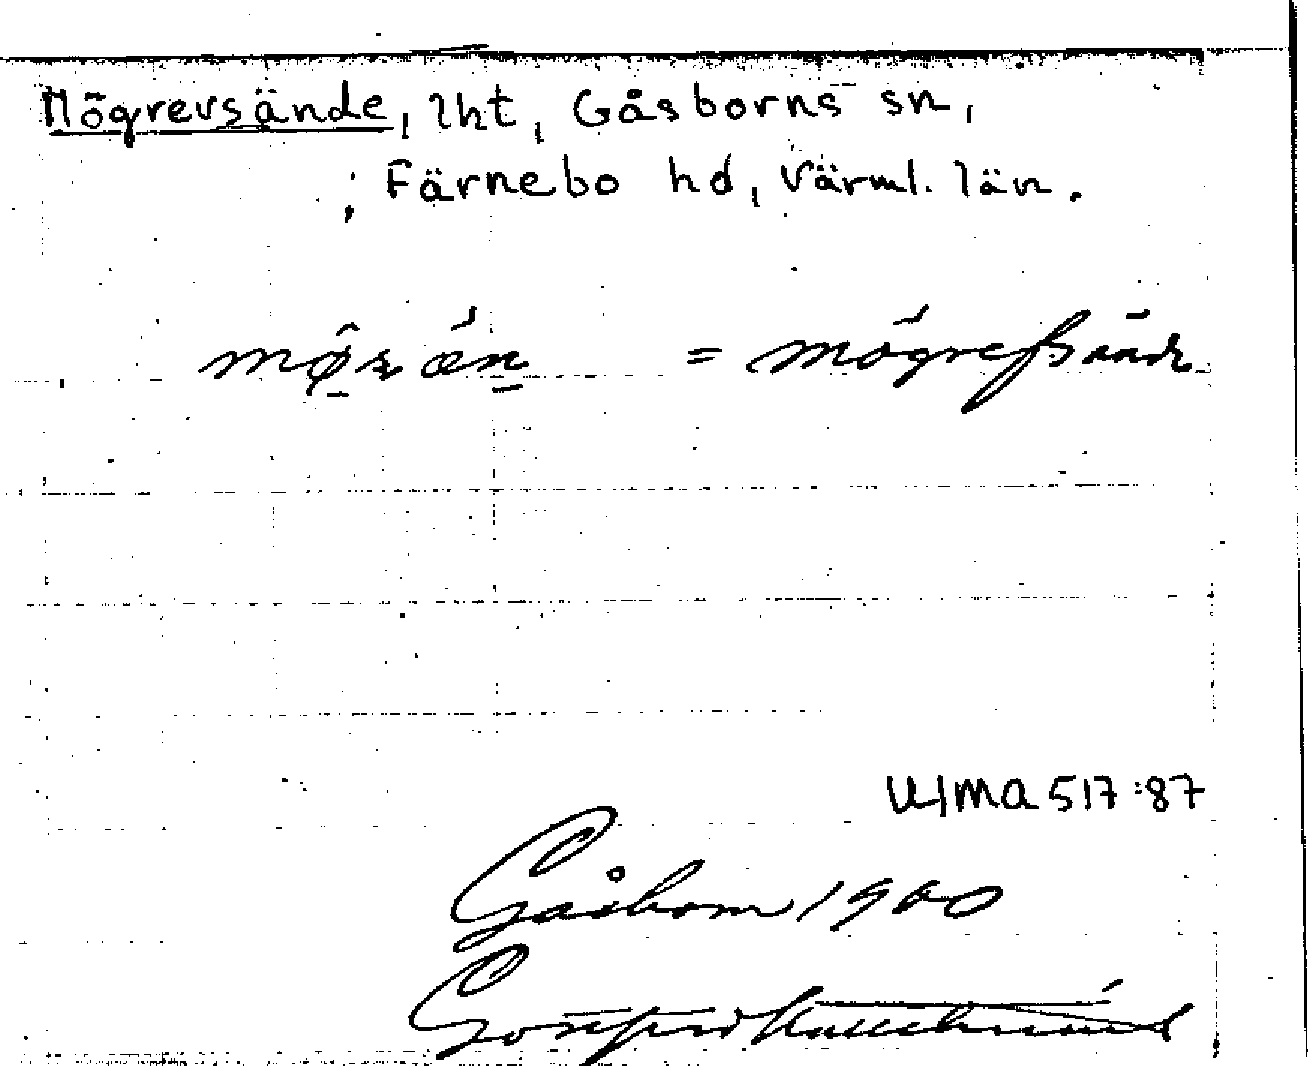 Mögrevsände, lht, Gåsborns sn,
Färnebo hd, Värml. län.
= mögrefsände
ULMA 517:87
Gåsborn 1900
Gottfrid Kallstenius